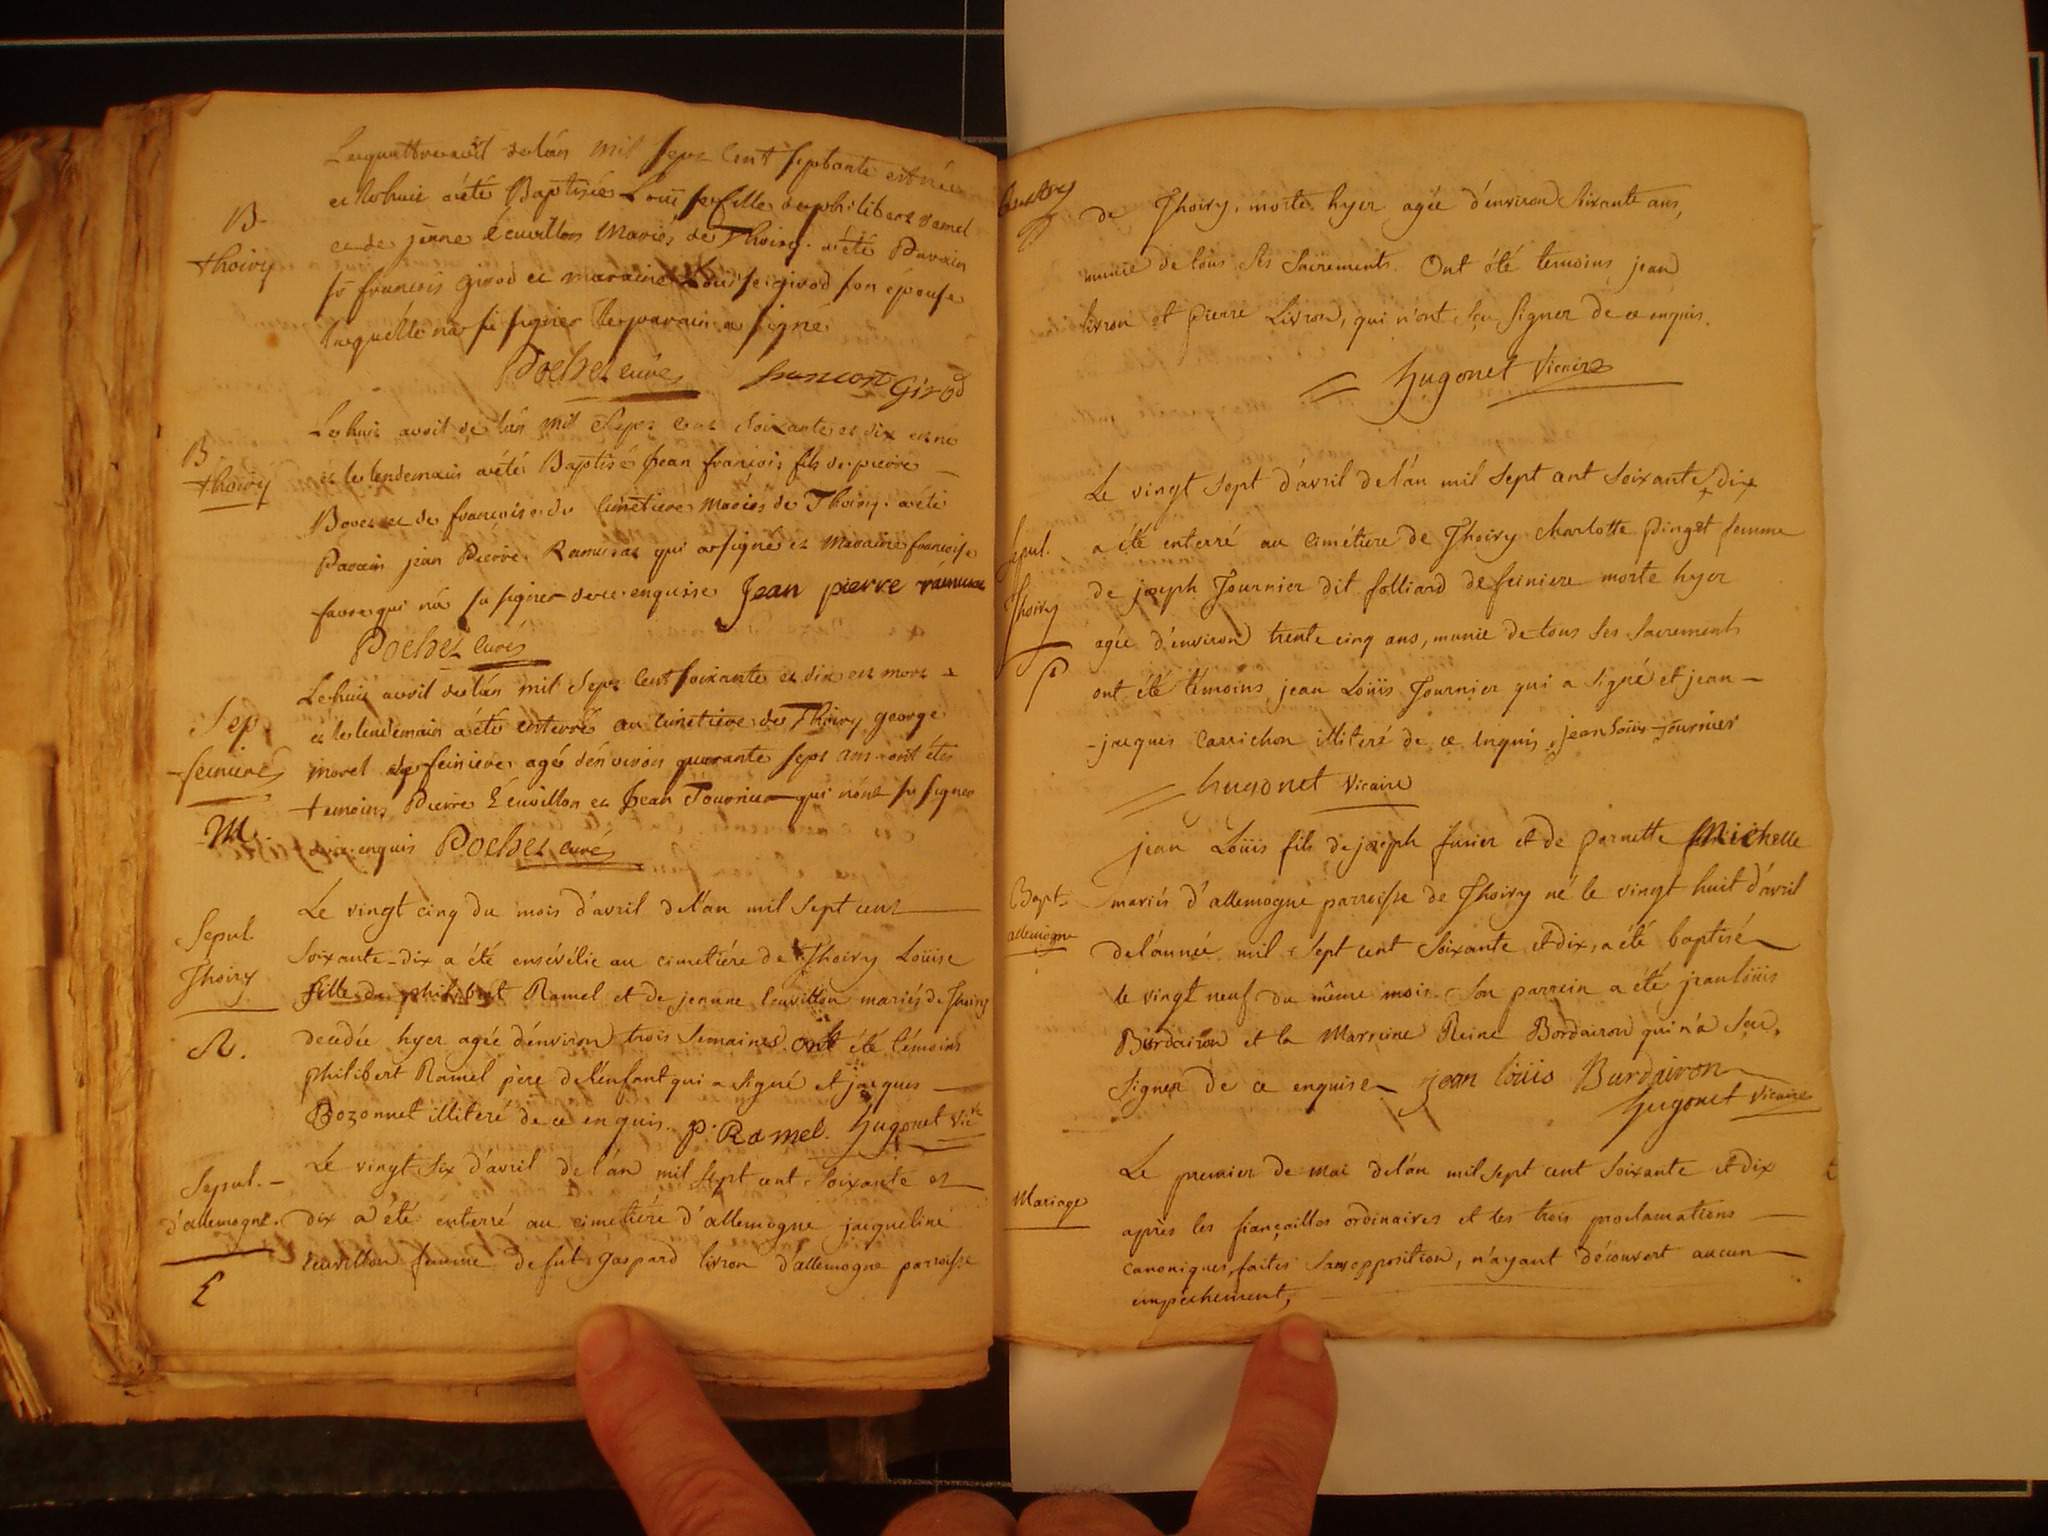 B.
Thoiry
Le quattre avril de l'an mil sept cent septante est née
et le huit a été Baptisée Louise fille de philibert Ramel
et de jeanne Ecuvillon Mariés de Thoiry. a été Parain
françois girod et maraine Louise girod son épouse
laquelle n'a su signer le parain a signé
Pochet curé françois Girod
B.
Thoiry
Le huit avril de l'an mil Sept cent soixante et dix est né
et le lendemain a été Baptisé Jean françois fils de pierre
Bovet et de françoise du cimetiere Mariés de Thoiry. a été
Parain jean Pierre Ramusat qui a signé et Maraine françoise
favre qui n'a su signer de ce enquise Jean pierre ramusat
Pochet curé
Sep.
feiniere
M.
Le huit avril de l'an mil Sept cent soixante et dix est mort
et le lendemain a été enterré au cimetiere de Thoiry george
morel de feiniere agé d'environ quarante sept ans ont été
temoins Pierre Ecuvillon et Jean Tournier qui n'ont su signer
de ce enquis Pochet curé
Sepul.
Thoiry
R.
Le vingt cinq du mois d'avril de l'an mil Sept cent
soixante-dix a été ensévélie au cimetiére de Thoiry Loüise
fille de philibert Ramel et de jeanne Ecuvillon mariés de Thoiry
decedée hyer agée d'environ trois semaines. ont été témoins
philibert Ramel père de l'enfant qui a signé et jacques
Bozonnet illiteré de ce enquis. p. Ramel. hugonet vic.re
Sepul.
d'allemogne.
E
Le vingt six d'avril de l'an mil Sept cent soixante et
dix a été enterré au cimetiére d'allemogne jacqueline
Ecuvillon femme de fut gaspard livron d'allemogne parroisse
de Thoiry, morte hyer agée d'environ soixante ans,
munie de tous ses sacrements. Ont été temoins jean
livron et pierre Livron, qui n'ont seu signer de ce enquis.
hugonet Vicaire
Sepul.
Thoiry
P
Le vingt sept d'avril de l'an mil Sept cent soixante & dix
a été enterré au cimétiere de Thoiry charlotte pinget femme
de joseph Tournier dit folliard de feiniere morte hyer
agée d'environ trente cinq ans, munie de tous ses sacrements
ont été témoins jean Loüis Tournier qui a signé et jean-
-jacques Carrichon illiteré de ce enquis. jean Loüis tournier
hugonet vicaire
Bapt.
allemogne
jean Loüis fils de joseph fusier et de pernette Michelle
mariés d'allemogne parroisse de Thoiry né le vingt huit d'avril
de l'année mil Sept cent soixante et dix, a été baptisé
le vingt neuf du même mois. Son parrein a été jean loüis
Burdairon et la Marreine Reine Bordairon qui n'a seu
signer de ce enquise jean loüis Burdairon
hugonet vicaire
Mariage
Le premier de mai de l'an mil sept cent soixante et dix
après les fiançailles ordinaires et les trois proclamations
canoniques, faites sans opposition, n'ayant découvert aucun
empêchement,